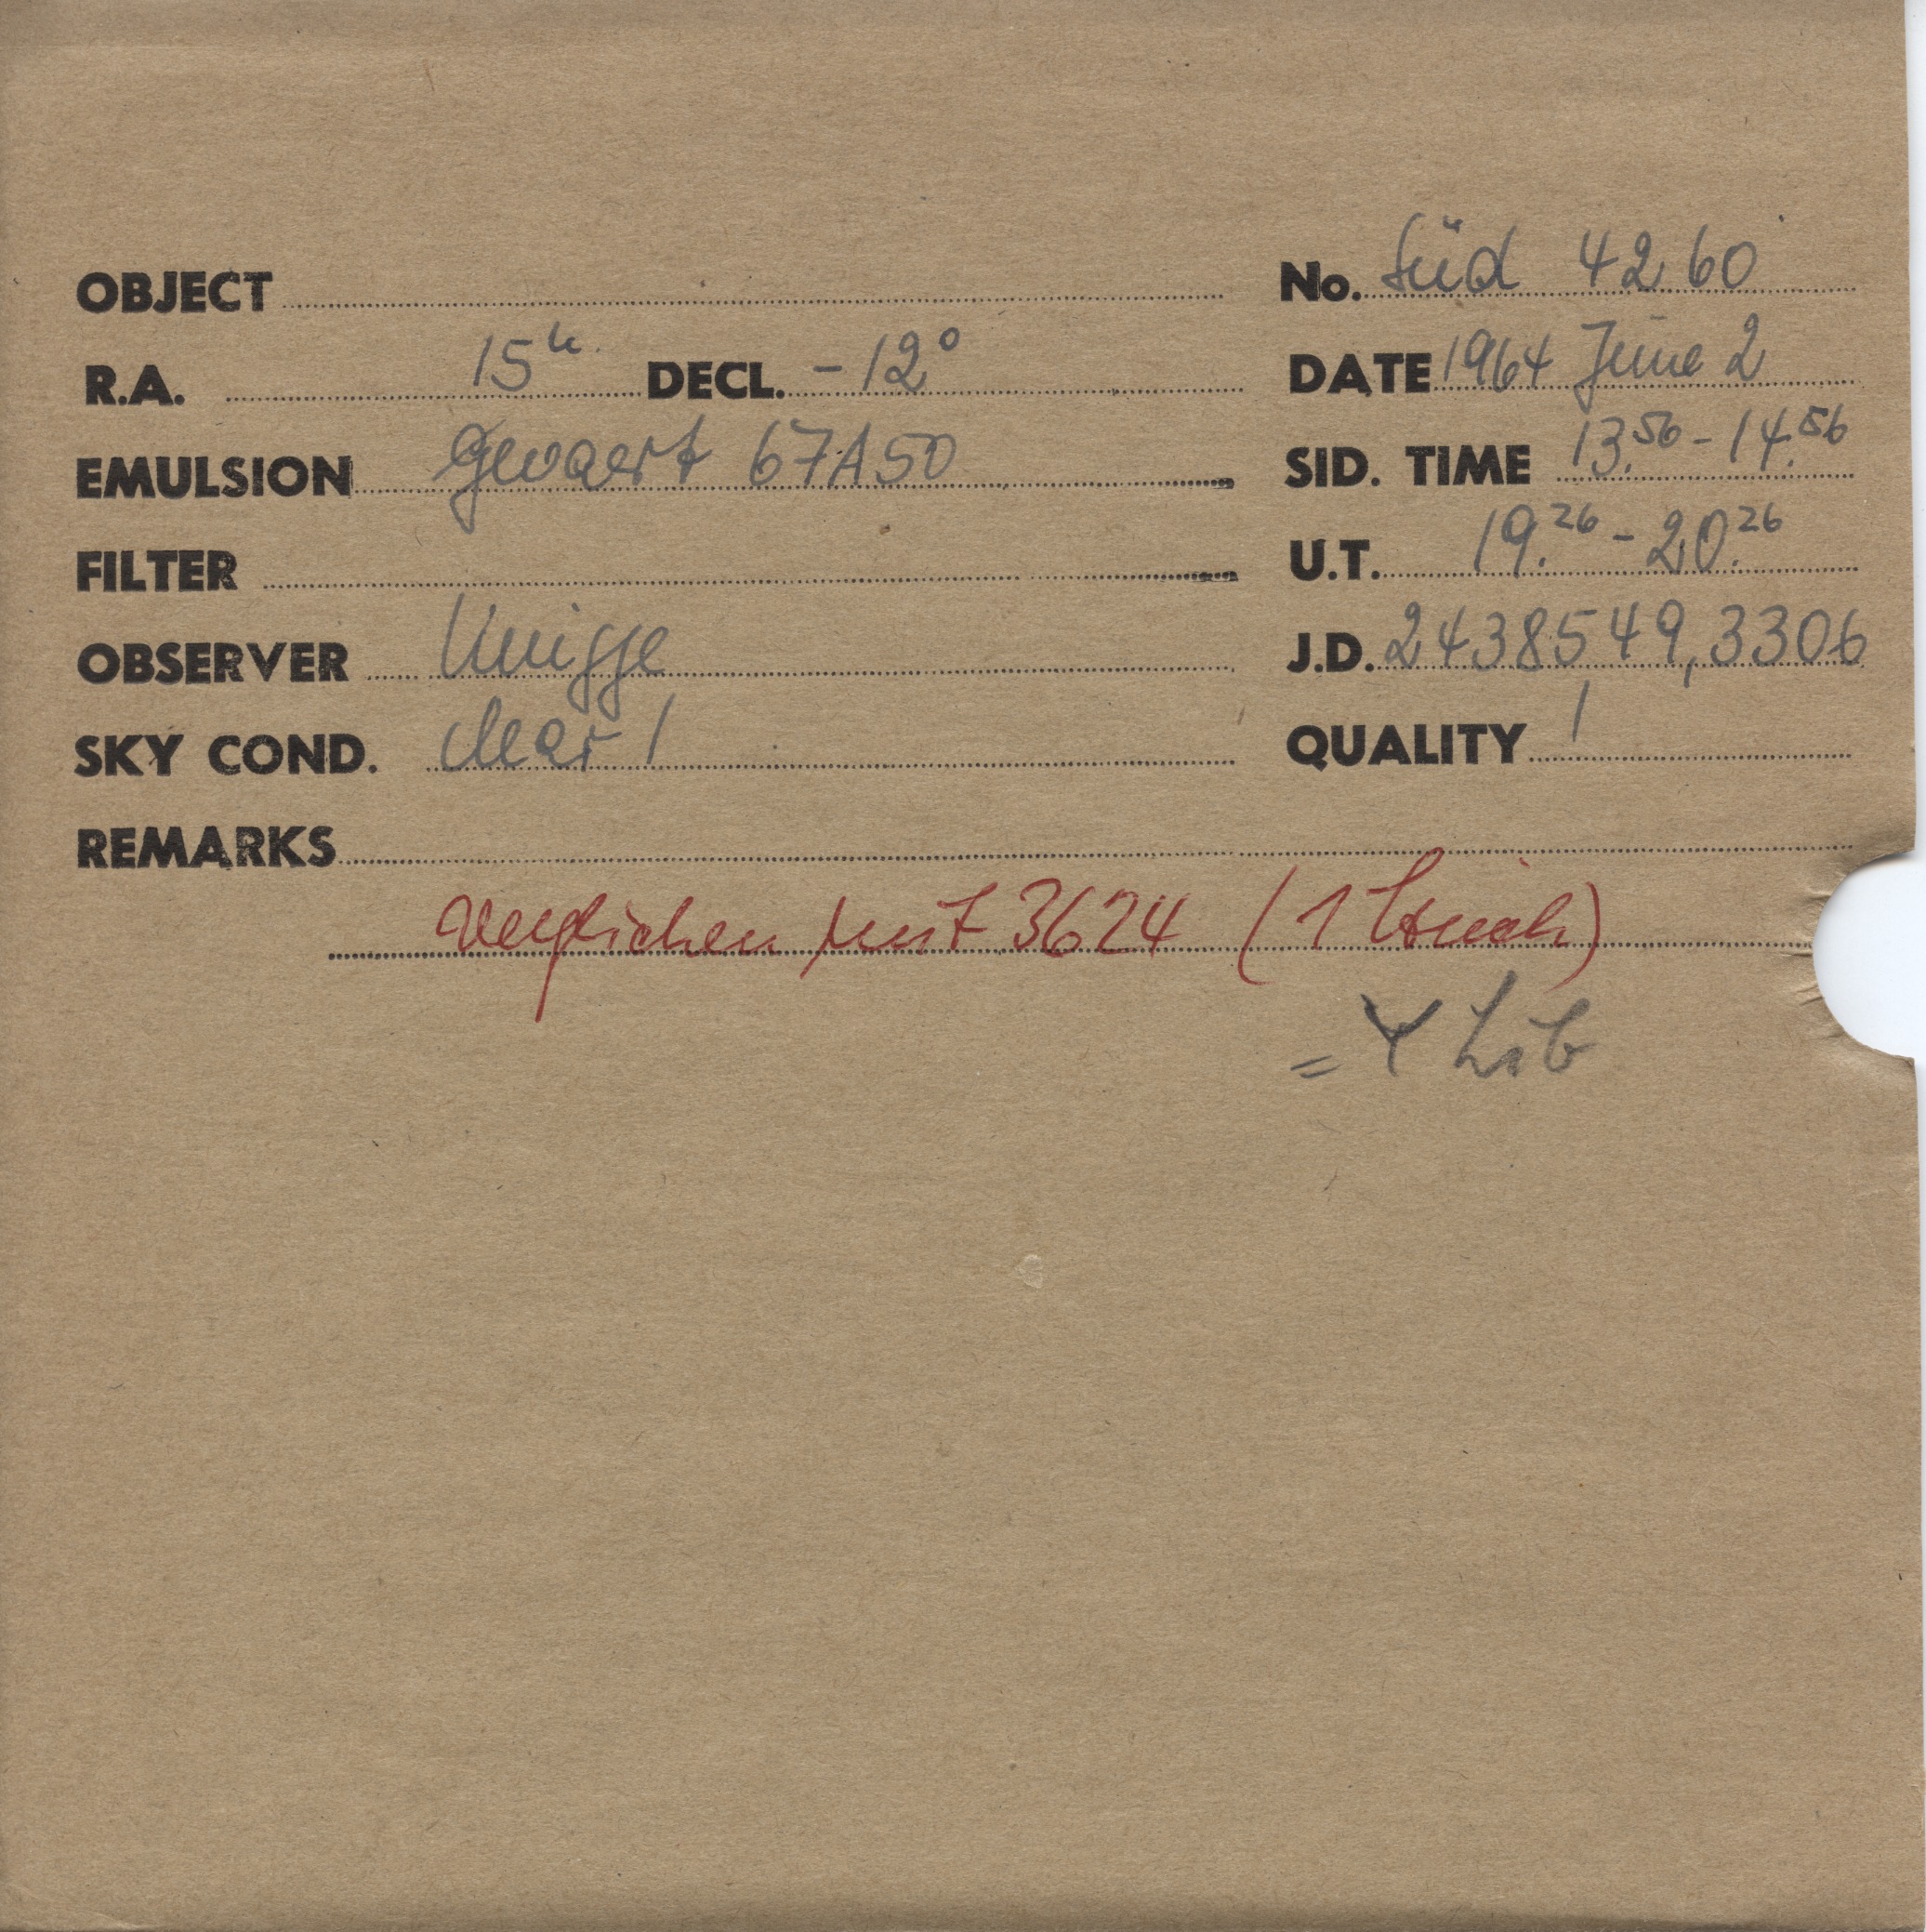 OBJECT
No. Süd 4260
R.A. 15h DECL. -12°
DATE 1964 June 2
EMULSION Gevaert 67A50
SID. TIME 13.56 - 14.56
FILTER
U.T. 19.26 - 20.26
OBSERVER Knigge
J.D. 2438549,3306
SKY COND. clear 1
QUALITY 1
REMARKS
verglichen mit 3624 (1 Strich)
= Y Lib